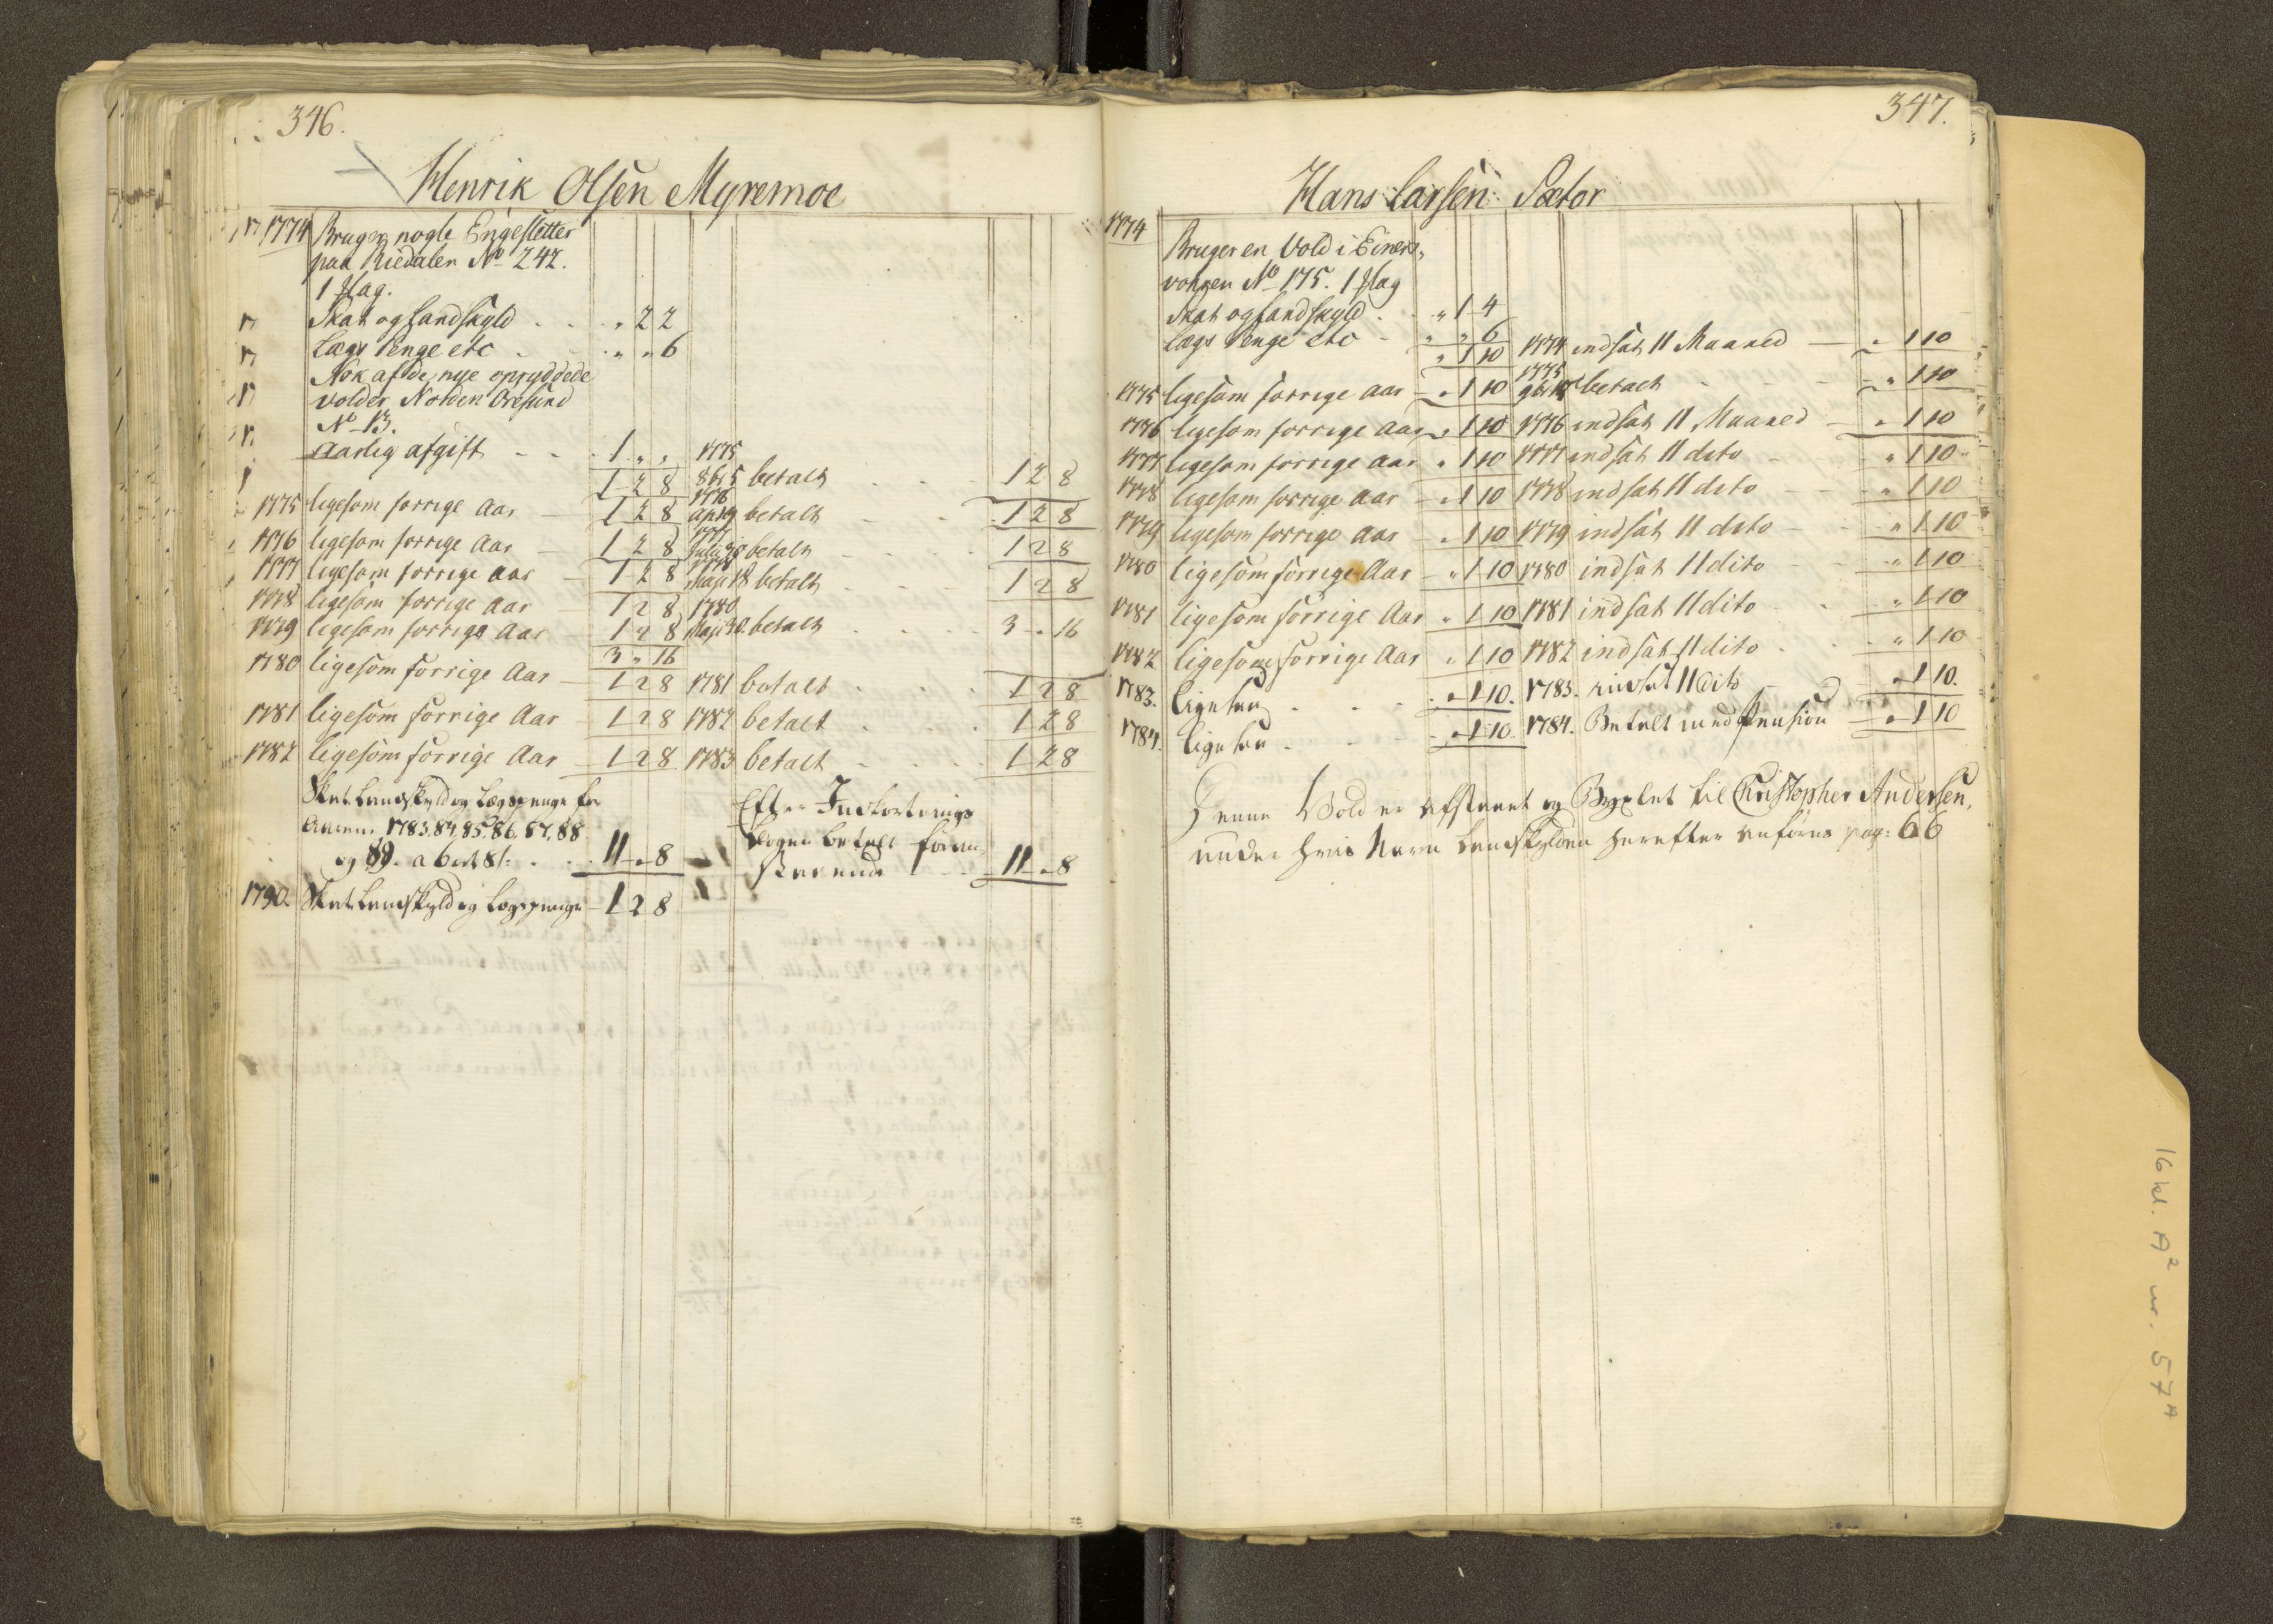 346.
Henrik Olsen Myremoe
1774 Bruger nogle Engesletter
paa Riedalen No 242.
1 flag.
Skat og Landskyld . . " 2 2
Lægs Penge etc . . " " 6
Nok af de nye opryddede
volder Norden Øresund
No 13.
aarlig afgift . . 1 " " 1775
1 2 8 8br 5 betalt . . . 1 2 8
1775 ligesom forrige Aar 1 2 8 1776 april 9 betalt 1 2 8
1776 ligesom forrige Aar 1 2 8 1777 Julii 30 betalt 1 2 8
1777 ligesom forrige aar 1 2 8 1778 Maji 18 betalt 1 2 8
1778 ligesom forrige Aar 1 2 8 1780
1779 ligesom forrige Aar 1 2 8 Maji 30 betalt . . . 3 " 16
3 " 16
1780 ligesom forrige Aar 1 2 8 1781 betalt . . . 1 2 8
1781 ligesom forrige Aar 1 2 8 1782 betalt . . . 1 2 8
1782 ligesom forrige Aar 1 2 8 1783 betalt . . . 1 2 8
Skat Landskyld og Lægspenge for
Aarene 1783. 84. 85. 86. 87. 88
og 89. a 6 ort 8 s: . . 11 " 8
Efter Indfortnings
bogen betalt foran
staaende . . 11 " 8
1790. Skat Landskyld og Lægspenge 1 2 8
347.
Hans Larsen Sætor
1774
Bruger en Vold i Einers,
vollen No 175. 1 flag
Skat og Landskyld . " 1 4
Lægs Penge etc - " " 6
" 1 10 1774 indsat 11 Maaned " 1 10
1775 ligesom forrige Aar " 1 10 1775 9br betalt " 1 10
1776 ligesom forrige Aar " 1 10 1776 indsat 11 Maaned " 1 10
1777 ligesom forrige Aar " 1 10 1777 indsat 11 dito " 1 10
1778 ligesom forrige Aar " 1 10 1778 indsat 11 dito " 1 10
1779 ligesom forrige Aar " 1 10 1779 indsat 11 dito " 1 10
1780 ligesom forrige Aar " 1 10 1780 indsat 11 dito " 1 10
1781 ligesom forrige Aar " 1 10 1781 indsat 11 dito " 1 10
1782 ligesom forrige Aar " 1 10 1782 indsat 11 dito " 1 10
1783. ligesaa . . . " 1 10. 1783. indsat 11 dito " 1 10.
1784. ligesaa . . . " 1 10. 1784. Betalt med Pension " 1 10
Denne Vold er afstaaet og Bygslet til Christopher Andersen,
under hvis Navn Landskylden herefter anføres pag: 66
16 kl. A2 nr. 57A